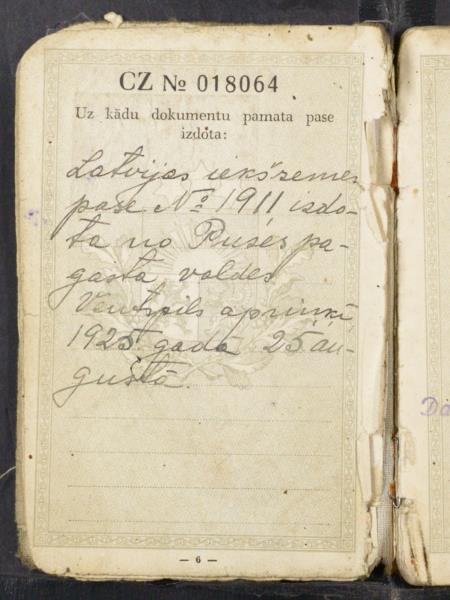 CZ № 018064
Uz kādu dokumentu pamata pase
izdota:
Latvijas iekšzemes
pase № 1911 izdo-
ta no Puses pa-
gasta valdes
Ventspils apriņķī
1925 gada 25 au-
gustā.
— 6 —
Da